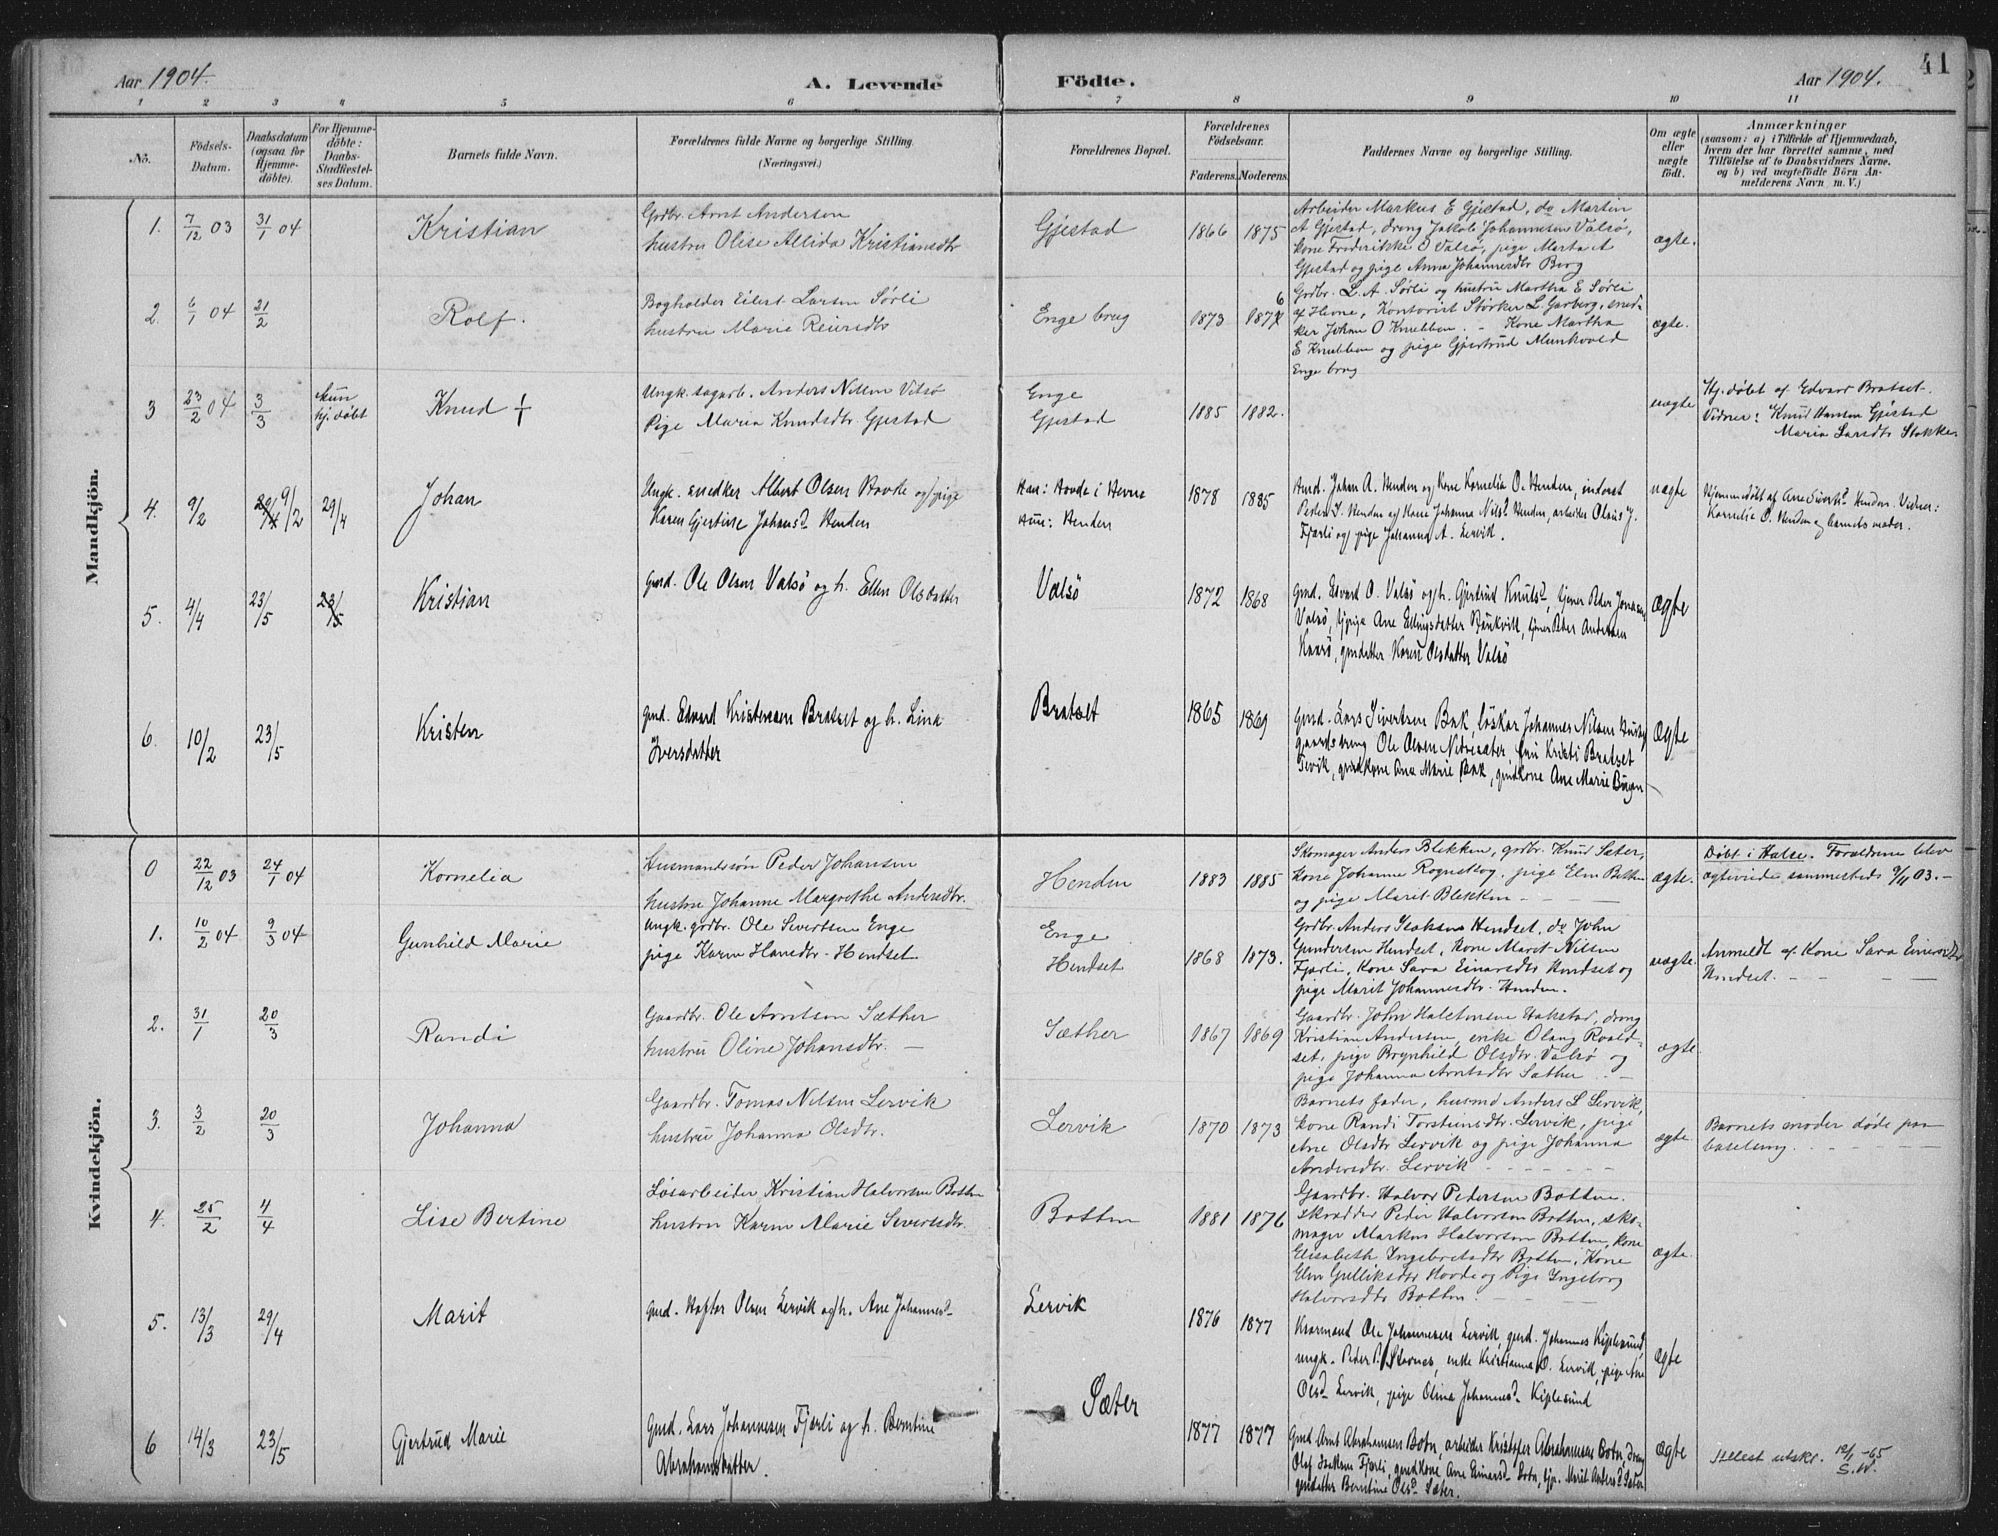 41
Aar 1904.
A. Levende
Födte.
Aar 1904.
1 2 3 4 5 6 7 8 9 10 11
No.
Födsels-
Datum.
Daabsdatum
(ogsaa for
Hjemme-
döbte).
For Hjemme-
döbte:
Daabs-
Stadfæstel-
ses Datum.
Barnets fulde Navn.
Forældrenes fulde Navne og borgerlige Stilling.
(Næringsvei.)
Forældrenes Bopæl.
Forældrenes
Födselsaar.
Faderens. Moderens.
Faddernes Navne og borgerlige Stilling.
Om ægte
eller
uægte
födt.
Anmærkninger
(saasom: a) i Tilfælde af Hjemmedaab,
hvem der har forrettet samme, med
Tilföielse af to Daabsvidners Navne.
og b) ved uægtefödte Börn An-
melderens Navn m. V.)
Mandkjön.
1. 7/12 03 31/1 04 Kristian
Grdbr. Arnt Andersen
hustru Olise Allida Kristiansdtr
Gjestad 1866 1875
Arbeider Markus E Gjestad, do Martin
A Gjestad, dreng Jakob Johannesen Valsø,
kone Frederikke O Valsø, pige Marta A
Gjestad og pige Anna Johannesdtr Berg
ægte.
2. 6/1 04 21/2 Rolf.
Bogholder Eilert Larsen Sørli
hustru Marie
Enge brug 1873 1876
Grdbr. L. A. Sørli og hustru Martha E Sørli
af Hevne, Kontorist Størker L. Garberg, sned-
ker Johan O Knubben. - Kone Martha
E Knubben og pige Gjertrud Munkvold
Enge brug
ægte.
3 23/2 04 3/3 kun
hj. døbt Knud +
Ungk. sagarb. Anders Nilsen Valsø
Pige Maria Knudsdtr. Gjestad
Enge
Gjestad
1885 1882.
uægte
Hj. døbt af Edvard Bratset.
Vidner: Knud Hansen Gjestad
Maria Larsdtr Stokke
4. 9/2 29/4 9/2 29/4 Johan
Ungk. snedker Albert Olsen Hovde og pige
Karen Gjertine Johansd. Henden
Han: Hovde i Hevne
Hun: Henden
1878 1885
Husmd. Johan A. Henden og kone Kornelia O. Henden, inderst
Peder I. Henden og kone Johanna Nilsd. Henden, arbeider Olaus J.
Fjærli og pige Johanna A. Lervik.
uægte
Hjemmedøbt af Ane Sivertsd. Henden. Vidner:
Kornelia O. Henden og barnets moder.
5. 4/4 23/5 23/5 Kristian
Gmd. Ole Olsen Valsø og h. Ellen Olsdatter
Valsø 1872 1868
Gmd. Edvard O. Valsø og h. Gjertrud Knutsd., tjener Peder Jonasen
Valsø, tjpige Ane Ellingsdatter, tjener Peter Andersen
gmdatter Karen Olsdatter Valsø
Ægte
6. 10/2 23/5 Kristen
Gmd. Edvard Kristensen Bratset og h. Lina
Iversdatter
Bratset 1865 1869
Gmd. Lars Sivertsen Bak, løskar Johannes Nilsen
gaardsdreng Ole Olsen, Kristi Bratset
gmdkone Ane Marie Bak, gmdkone Ane Marie
Ægte
Kvindekjön.
0 22/12 03 24/1 04 Kornelia
Husmandssøn Peder Johansen
hustru Johanne Margrethe Andersdtr.
Henden 1883 1885
Skomager Anders Blekken, grdbr. Knud Sæter,
kone Johanne Rognskog, pige Elen Botten
og pige Marit Blekken
ægte.
Døbt i Halse. Forældrene blev
ægteviede sammesteds 9/11 03. -
1. 10/2 04 9/3 04 Gunhild Marie
Ungk. grdbr. Ole Sivertsen Enge
pige Karen Hansdtr. Hendset
Enge
Hendset
1868 1873.
Grdbr. Anders Hendset, do John
Gundersen Hendset, kone Maret Nilsen
Fjærli, kone Sara Einarsdtr Hendset og
pige Marit Johannesdtr. Henden.
uægte.
Anmeldt af kone Sara Einarsdtr
Hendset.
2. 31/1 20/3 Randi
Gaardbr. Ole Arntsen Sæther
hustru Oline Johansdtr. -
Sæther 1867 1869
Gaardbr. John Hakstad, dreng
Kristian Andersen, enke Olaug Roald-
set, pige Brynhild Olsdtr. Valsø og
pige Johanna Arntsdtr Sæther
ægte.
3. 3/2 20/3 Johanna
Gaardbr. Tomas Nilsen Lervik
hustru Johanna Olsdtr.
Lervik 1870 1873
Barnets fader, husmd Anders L Lervik,
kone Randi Torsteinsdtr. Lervik, pige
Ane Olsdtr Lervik og pige Johanna
Andersdtr. Lervik
ægte
Barnets moder døde paa
barselseng.
4. 25/2 4/4 Lise Bertine
Løsarbeider Kristian Halvorsen Botten
hustru Karen Marie Sivertsdtr.
Botten 1881 1876
Gaardbr. Halvor Pedersen Botten.
Skrædder Peder Halvorsen Botten, sko-
mager Markus Halvorsen Botten, kone
Elisabeth Ingebretsdtr Botten, Kone
Elen Gulliksdtr Hovde og Pige Ingeborg
Halvorsdtr Botten.
ægte.
5. 13/3 29/4 Marit
Gmd. Hoftor Olsen Lervik og h. Ane Johannesd.
Lervik 1876 1877
Kaarmand Ole Johannesen Lervik, gmd. Johannes Kiplesund,
ungk. Peder P. enke Kristianna O. Lervik, pige Ane
Olsd. Lervik, pige Olina Johannesd. Kiplesund
Ægte
6 14/3 23/5 Gjertrud Marie
Gmd. Lars Johannesen Fjærli og h. Berntine
Abrahamsdatter.
Sæter 1877 1877
Gmd. Arnt Abrahamsen Botn, arbeider Kristofer Abrahamsen Botn, dreng
Olaf Fjærli, gmdkone Ane Einarsd. Botn, tjp. Marit Andersd. Sæter
gmdatter Berntine Olsd. Sæter.
Ægte
Attest utskr. 12/1-65
S.W.